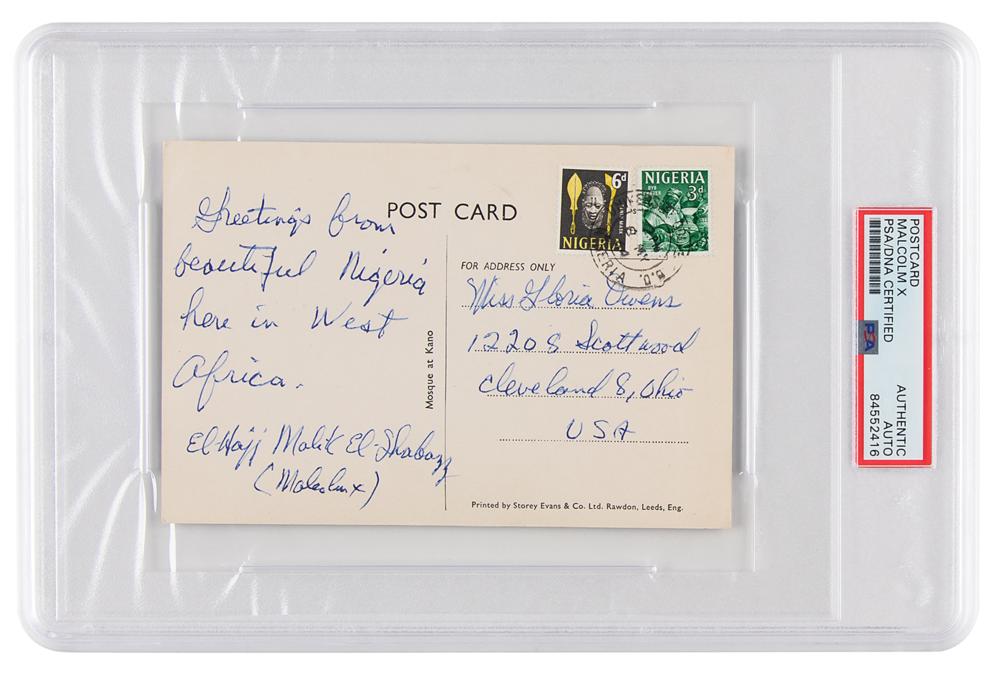 Greetings from
beautiful Nigeria
here in West
Africa.
El-Hajj Malik El-Shabazz
(Malcolm X)
POST CARD
Mosque at Kano
6d
NIGERIA
NIGERIA
3d
FOR ADDRESS ONLY
Miss Gloria Owens
12208 Scottwood
Cleveland 8, Ohio
USA
Printed by Storey Evans & Co. Ltd. Rawdon, Leeds, Eng.
POSTCARD
MALCOLM X
PSA/DNA CERTIFIED
PSA
AUTHENTIC
AUTO
84552416